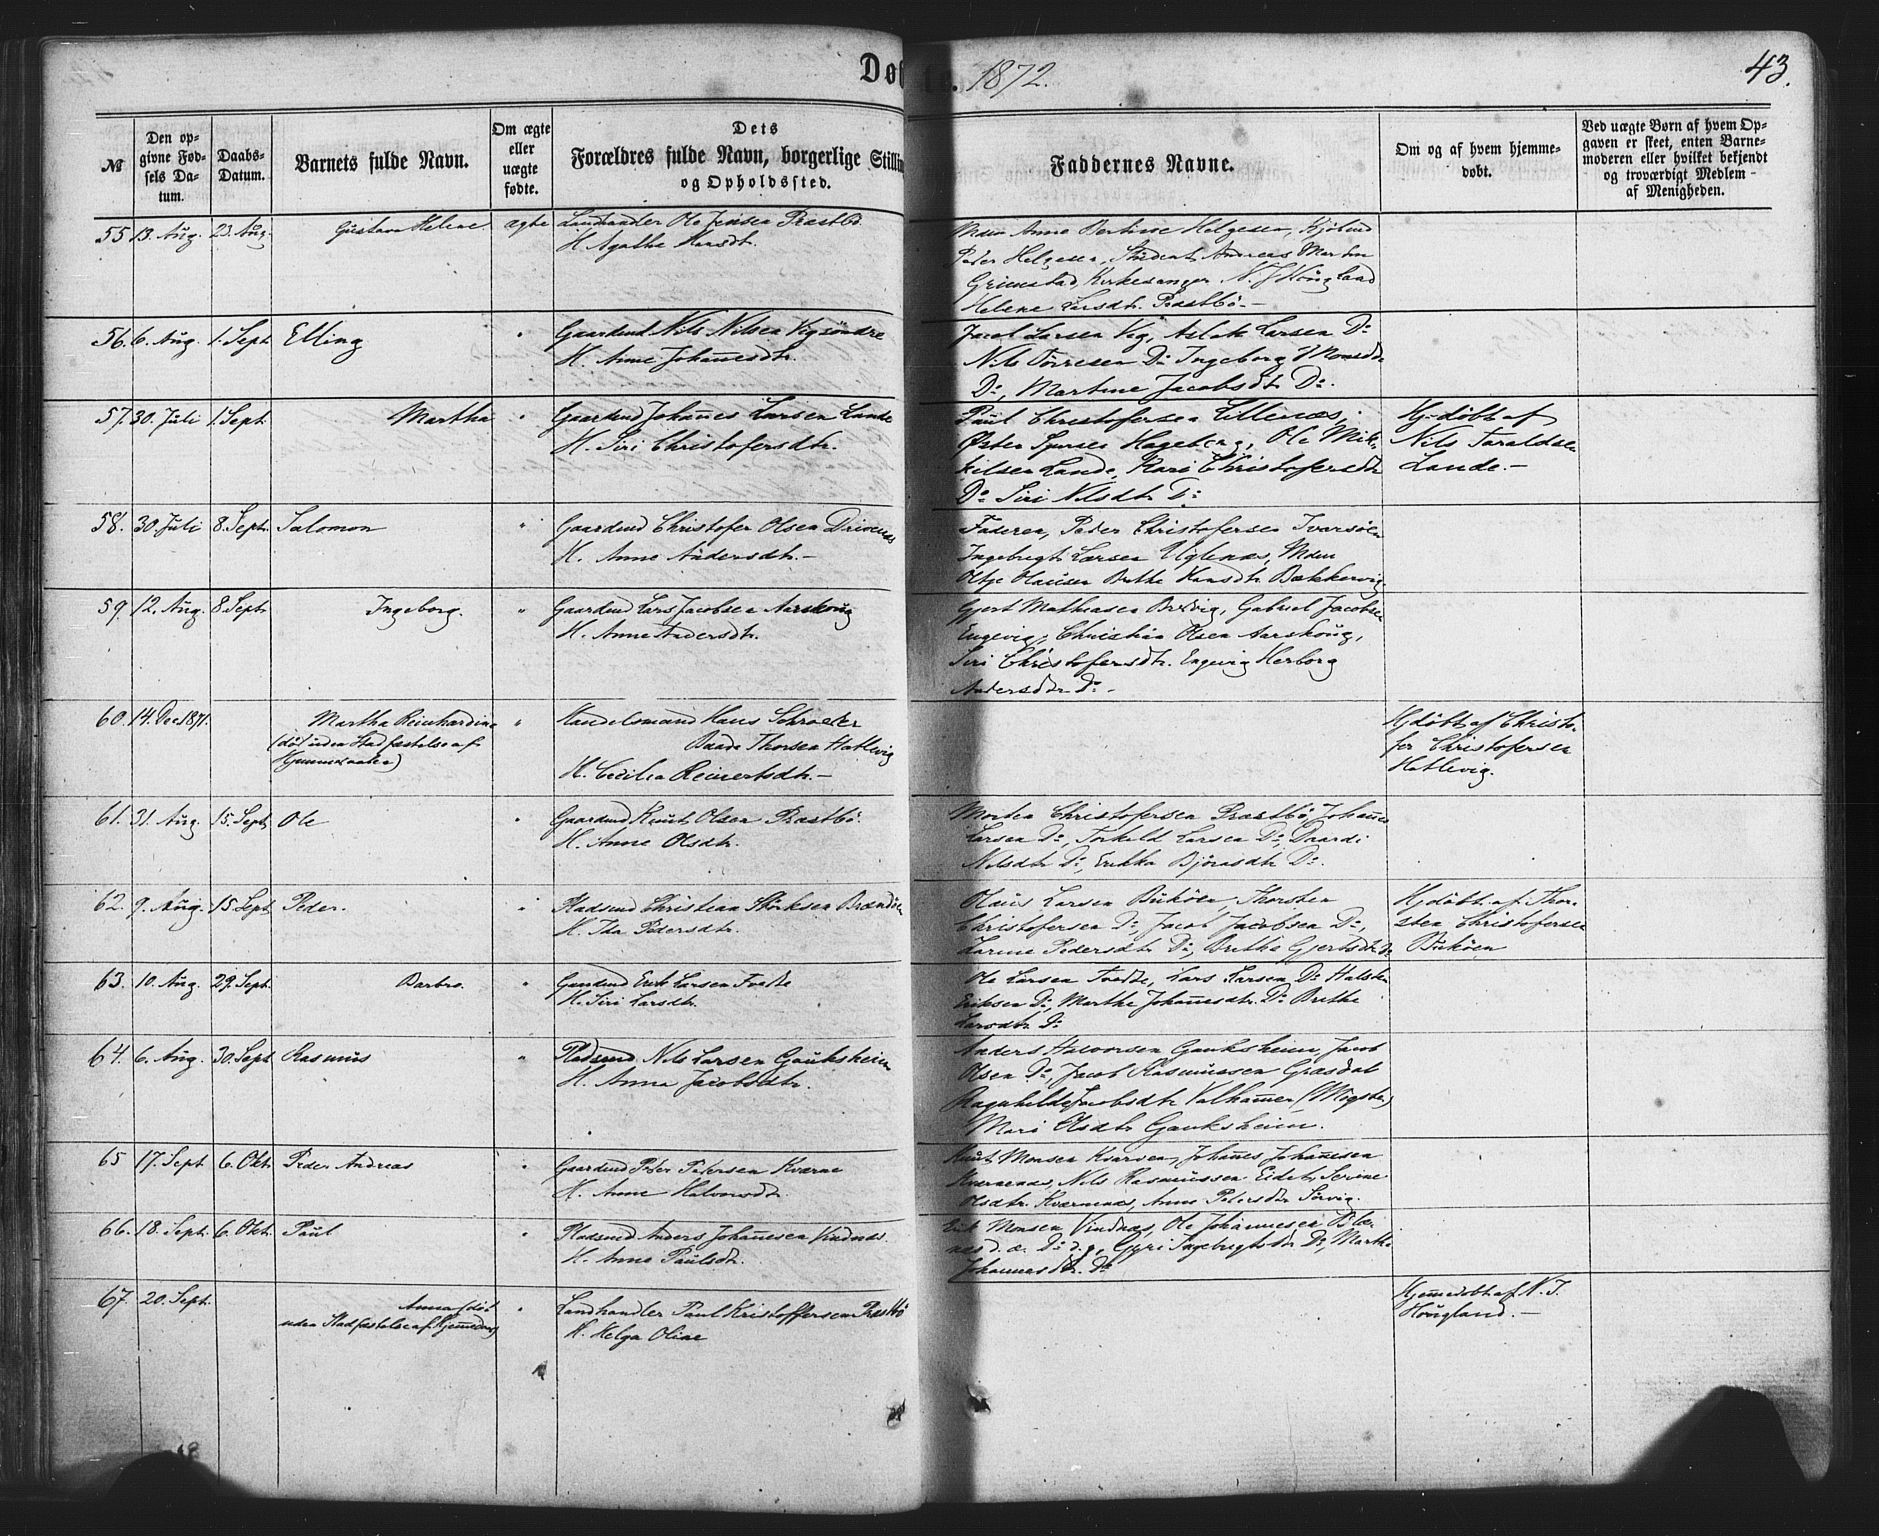 Døb
te. 1872.
43.
№
Den op-
givne Fød-
sels Da-
tum.
Daabs-
Datum.
Barnets fulde Navn.
Om ægte
eller
uægte
fødte.
Dets
Forældres fulde Navn, borgerlige Stillin
og Opholdssted.
Faddernes Navne.
Om og af hvem hjemme-
døbt.
Ved uægte Børn af hvem Op-
gaven er skeet, enten Barne-
moderen eller hvilket bekjendt
og troværdigt Medlem
af Menigheden.
55 13. Aug. 23. Aug. Gustava Helene ægte Landhandler Ole Jensen Præstbö
H. Agathe Larsdt.
Mdm Anne Berthine Helgesen, Kjöbmd
Peder Helgesen, Student Andreas Martin
Grimstad, Kirkesanger N. J. Hougland
Helene Larsdtr. Præstbö.-
56. 6. Aug. 1. Sept. Elling " Gaardmd Nils Nilsen Vigsöndre
H. Anne Johannesdtr.
Jacob Larsen Vig, Aslak Larsen Do
Nils Törresen Do Ingeborg Monsdtr
Do, Martine Jacobsdtr Do.
57. 30. Juli 1. Sept. Martha " Gaardmd Johannes Larsen Lande
H. Siri Christofersdtr.
Paul Christofersen Littlenæs,
Östen Sjursen Hageberg, Ole Mik-
kelsen Lande, Kari Christofersdtr
Do Siri Nilsdtr Do
Hj-döbt af
Nils Taraldsen
Lande.-
58. 30. Juli 8. Sept. Salomon " Gaardmd Christofer Olsen Drivenes
H. Anne Andersdtr.-
Faderen, Peder Christofersen Ivarsöen
Ingebrigt Larsen Uglenæs, Mdm
Oltje Olausen Brethe Hansdtr Bækkervig
59. 12. Aug. 8. Sept. Ingeborg. " Gaardmd Lars Jacobsen Aarskoug
H. Anne Andersdtr.
Gjert Mathiasen Bredvig, Gabriel Jacobsen
Engevig, Christian Olsen Aarskoug,
Siri Christofersdtr. Engevig Herborg
Andersdtr Do-
60. 14. Dec 1871. Martha Reinhardine " Handelsmand Hans Schroeder
(död uden Stadfæstelse af Baade Thorsen Hatlevig
Hjemmedaaben) H. Cecilia Reinertsdtr.-
Hjdöbt af Christo-
fer Christofersen
Hatlevig.
61. 31. Aug 15. Sept. Ole " Gaardmd Knut Olsen Præstbö.
H. Anne Olsdtr.
Morten Christofersen Præstbö, Johannes
Larsen Do, Torkild Larsen Do,
Nilsdtr Do, Erikka Björnsdtr Do.
62. 9. Aug. 15. Sept Peder. " Pladsmd Christian Störksen Brændöen
H. Tha Pedersdtr.
Olaus Larsen Buköen, Thorsten
Christofersen Do, Jacob Jacobsen Do,
Larine Pedersdtr Do, Brethe Gjertsdtr Do
Hjdöbt af Thor-
sten Christofersen
Buköen
63. 10. Aug. 29. Sept. Barbro. " Gaardmd Erik Larsen Tvedte
H. Siri Larsdtr.
Ole Larsen Tvedte, Lars Larsen Do Halsten
Eriksen Do, Marthe Johannesdtr. Do Brethe
Larsdtr Do
64. 6. Aug. 30. Sept Rasmus " Pladsmd Nils Larsen Gauksheim
H. Anna Jacobsdtr.
Anders Halvorsen Gauksheim, Jacob
Olsen Do, Jacob Rasmussen Græsdal
Ragnhilde Jacobsdtr Valhammer (Mögster)
Mari Olsdtr Gauksheim.
65 17. Sept 6. Okt. Peder Andreas " Gaardmd Peter Petersen Kværne
H. Anne Halvorsdtr.
Knut Monsen Kvarven, Johannes Johannesen
Kværnenæs, Nils Rasmussen Eidet, Serine
Olsdtr. Kværnenæs, Anne Petersdtr Sörvig.
66. 18. Sept. 6. Okt. Paul " Pladsmd Anders Johannesen Vindnæs.
H. Anne Paulsdtr.
Erik Monsen Vindnæs, Ole Johannesen Blæ-
næs d. æ. Do d. y., Gyri Ingebrigtsdtr Do, Marthe
Johannesdtr. Do
67. 20. Sept. Anna (död " Landhandler Paul Kristoffersen Præstbö
uden Stadfæstelse af Hjemmedaab) H. Helga Oline
Hjemmedöbt af N. J.
Hougland.-